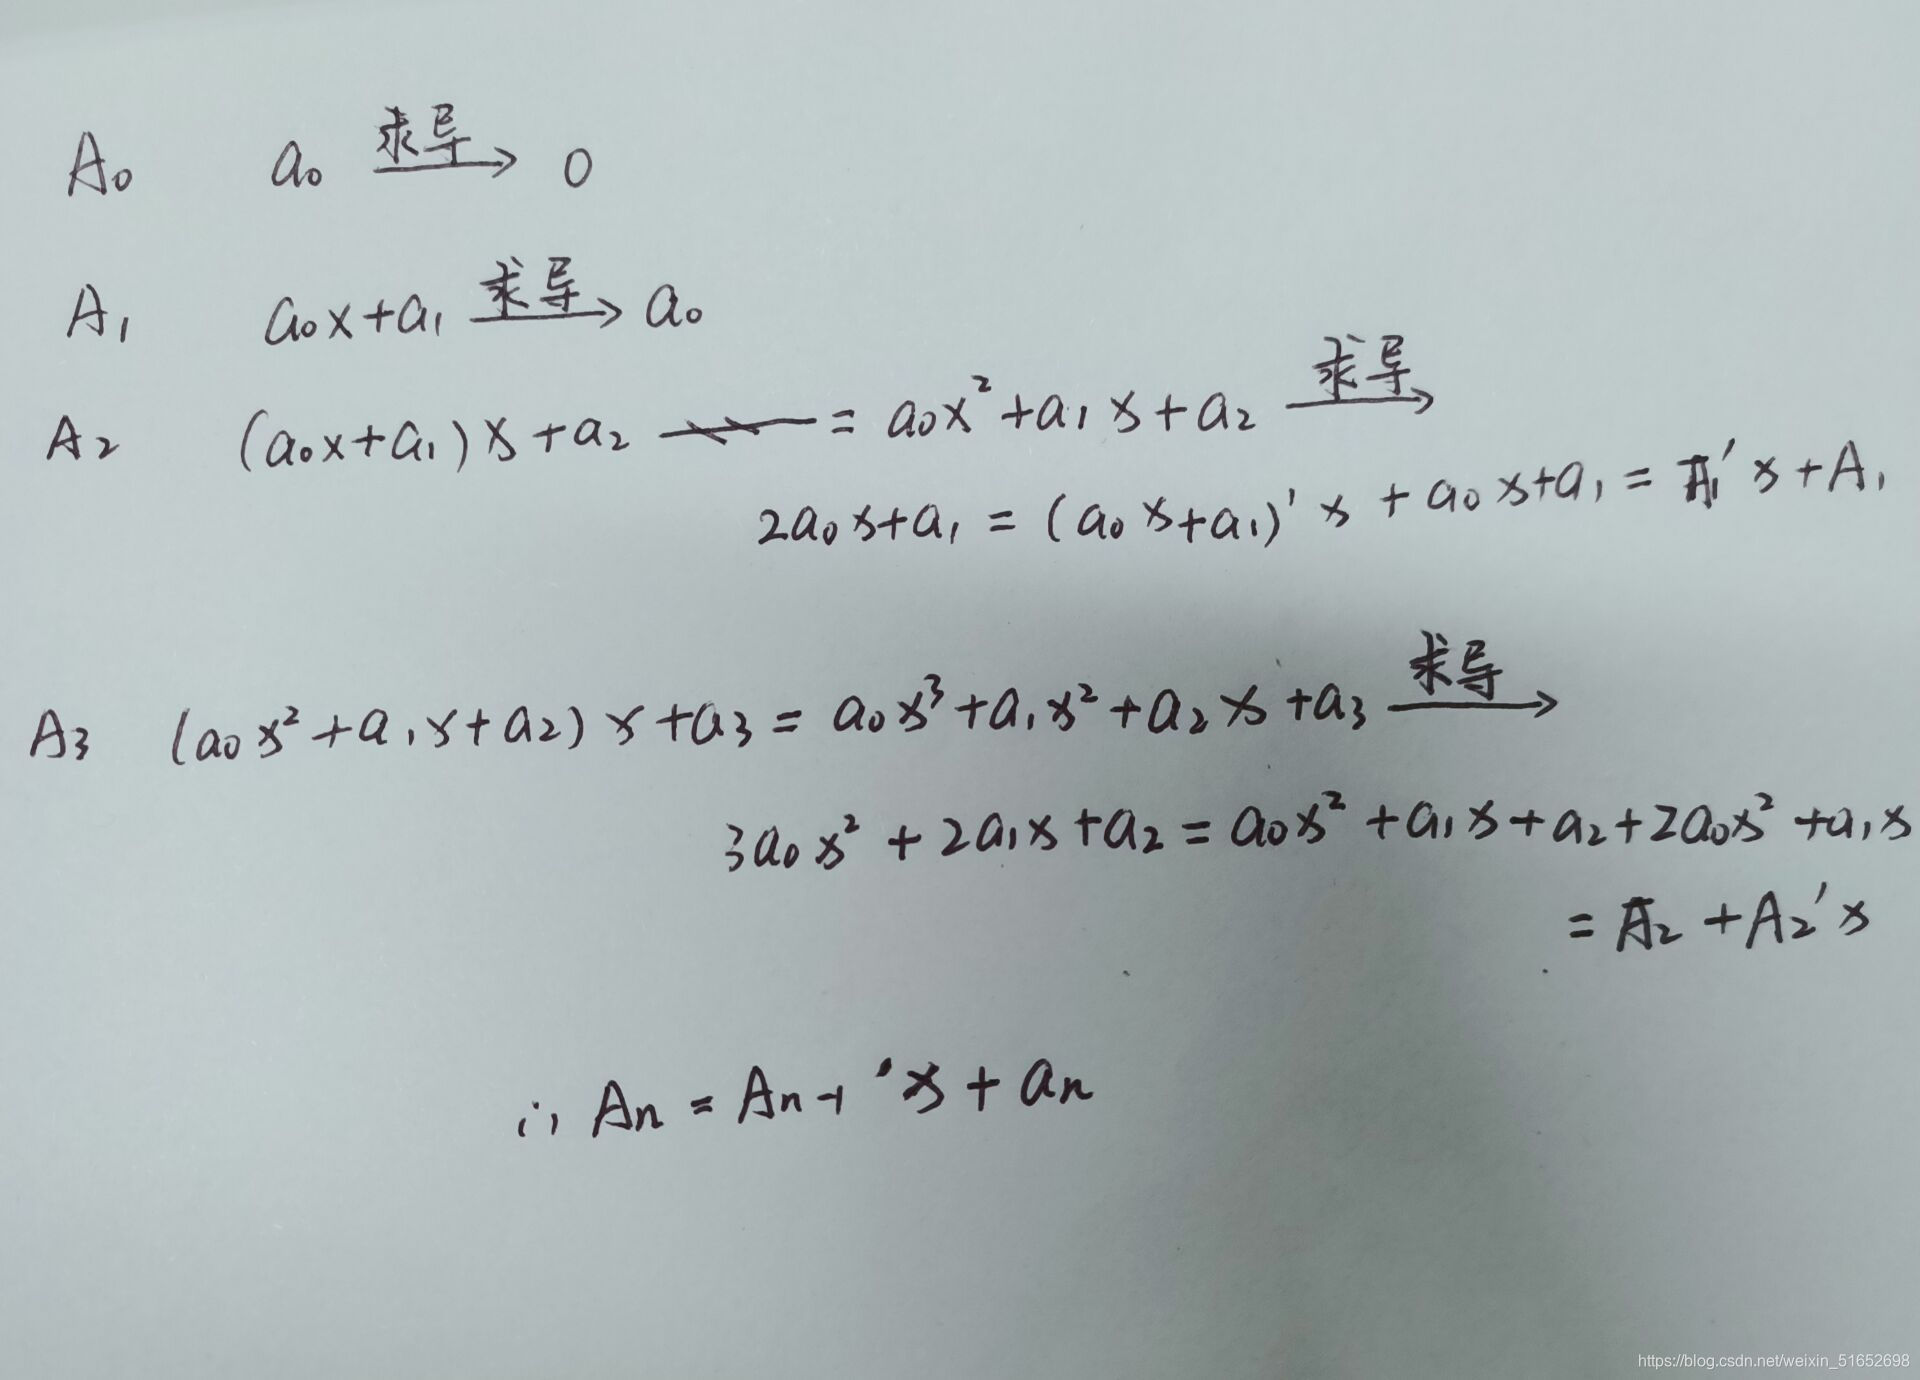 A₀ a₀ 求导→ 0
A₁ a₀x+a₁ 求导→ a₀
A₂ (a₀x+a₁)x+a₂ = a₀x²+a₁x+a₂ 求导→
2a₀x+a₁ = (a₀x+a₁)'x + a₀x+a₁ = A₁'x+A₁
A₃ (a₀x²+a₁x+a₂)x+a₃ = a₀x³+a₁x²+a₂x+a₃ 求导→
3a₀x²+2a₁x+a₂ = a₀x²+a₁x+a₂+2a₀x²+a₁x
= A₂+A₂'x
∴ Aₙ = Aₙ₋₁'x + aₙ
https://blog.csdn.net/weixin_51652698